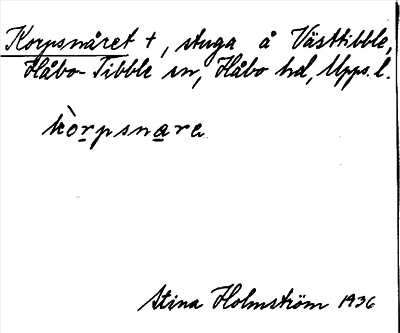 Korpsnåret +, stuga å Västtibble,
Håbo-Tibble sn, Håbo hd, Upps. l.
kòrpsnarɛ
Stina Holmström 1936